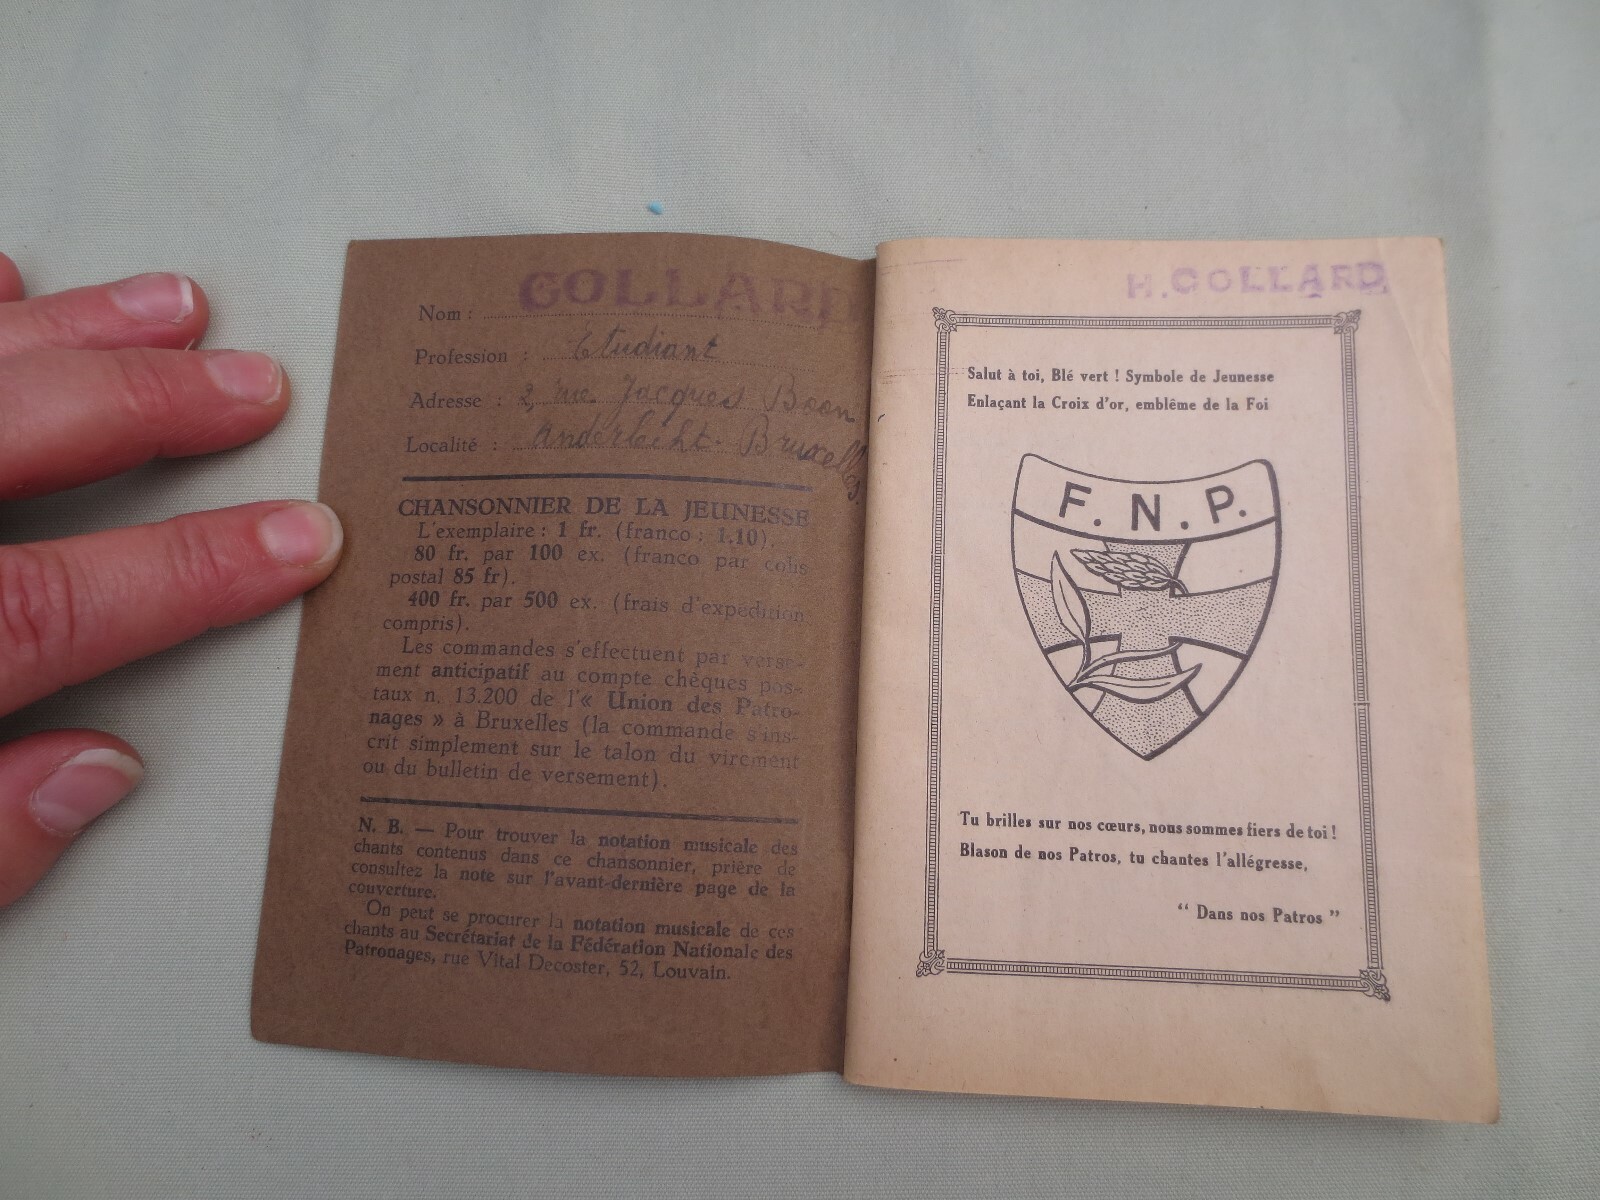 Nom : COLLARD
Profession : Etudiant
Adresse : 2, rue Jacques
Localité : Anderlecht - Bruxelles.
CHANSONNIER DE LA JEUNESSE
L'exemplaire : 1 fr. (franco : 1.10).
80 fr. par 100 ex. (franco par colis
postal 85 fr).
400 fr. par 500 ex. (frais d'expédition
compris).
Les commandes s'effectuent par verse-
ment anticipatif au compte chèques pos-
taux n. 13.200 de l'« Union des Patro-
nages » à Bruxelles (la commande s'ins-
crit simplement sur le talon du virement
ou du bulletin de versement).
N. B. — Pour trouver la notation musicale des
chants contenus dans ce chansonnier, prière de
consultez la note sur l'avant-dernière page de la
couverture.
On peut se procurer la notation musicale de ces
chants au Secrétariat de la Fédération Nationale des
Patronages, rue Vital Decoster, 52, Louvain.
H. COLLARD
Salut à toi, Blé vert ! Symbole de Jeunesse
Enlaçant la Croix d'or, emblême de la Foi
F. N. P.
Tu brilles sur nos cœurs, nous sommes fiers de toi !
Blason de nos Patros, tu chantes l'allégresse,
“ Dans nos Patros ”